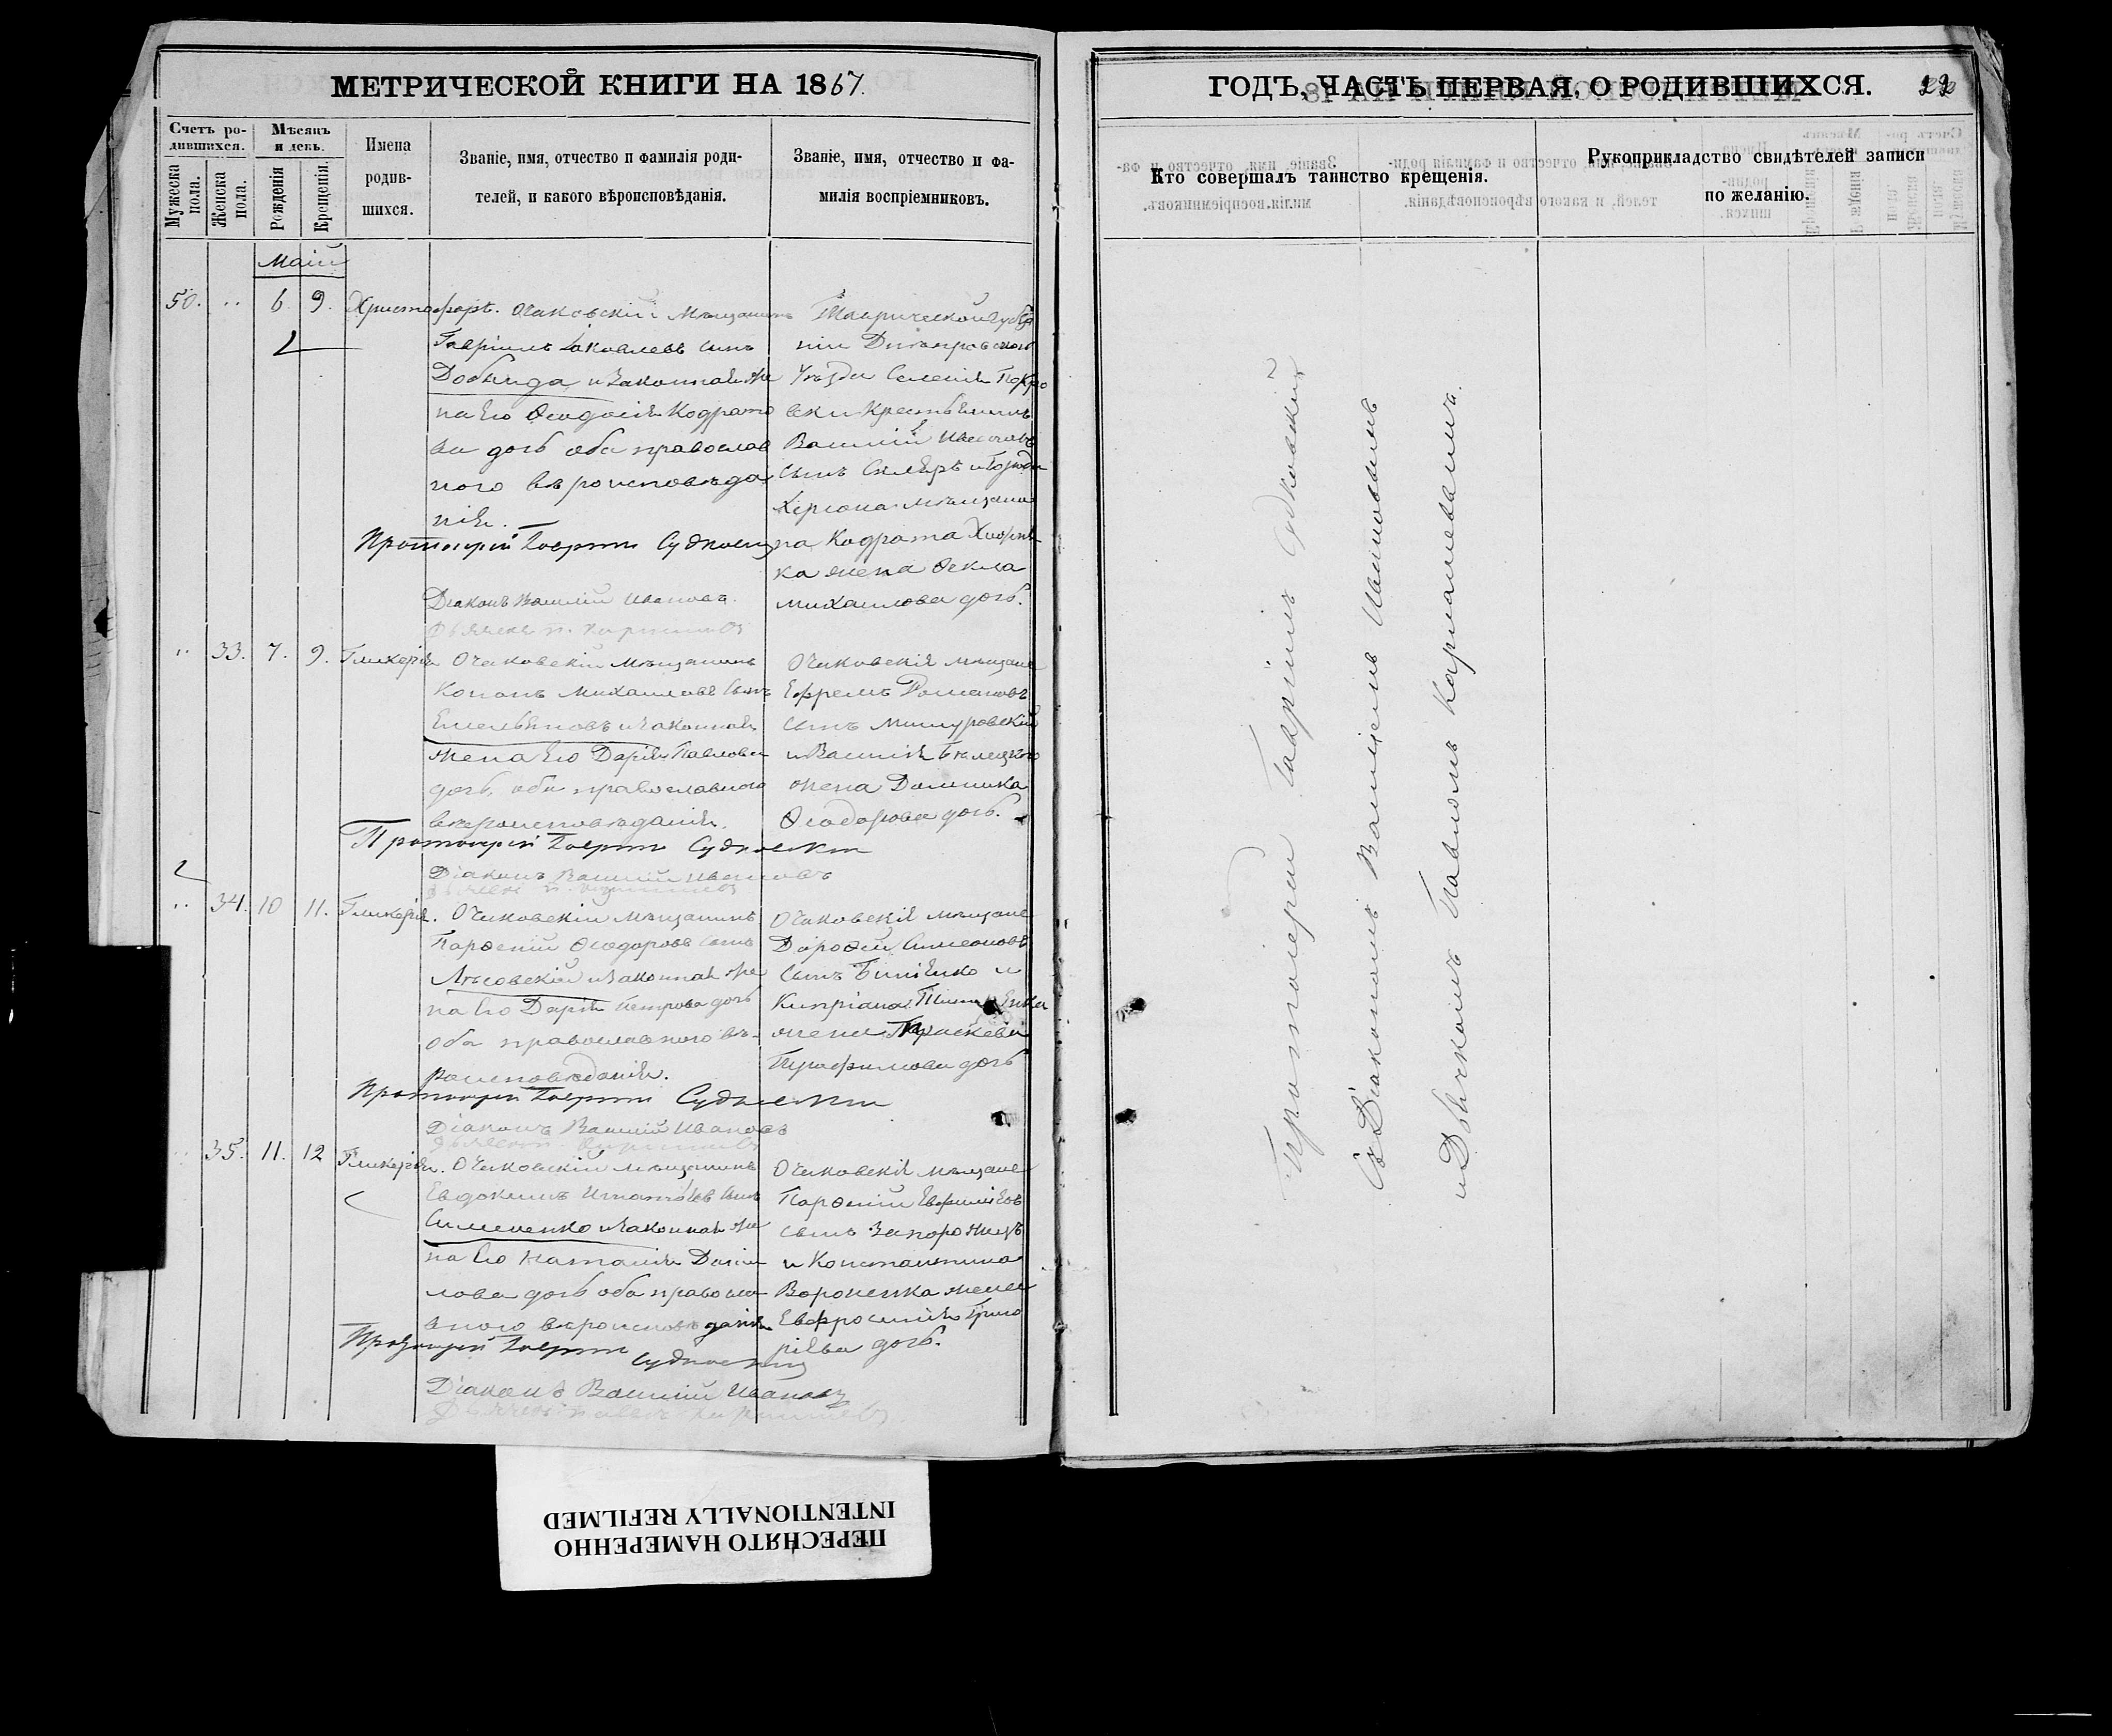 МЕТРИЧЕСКОЙ КНИГИ НА 1867.
Счетъ ро-
дившихся.
Мужеска
пола.
Женска
пола.
Мѣсяцъ
и день.
Рожденія
Крещенія.
Имена
родив-
шихся.
Званіе, имя, отчество и фамилія роди-
телей, и какого вѣроисповѣданія.
Званіе, имя, отчество и фа-
милія воспріемниковъ.
Маій
50. " 6. 9. Христофоръ.
Очаковскій мѣщанинъ
Гавріилъ Іаковлевъ сынъ
и законная же
на его Ѳеодосія Кодрато
ва дочь оба православ
ного вѣроисповѣда
нія.
Протоіерей Гавріилъ Судковскій
Діаконъ Василій Ивановъ.
Таврической губер
ніи Днѣпровского
уѣзда селенія Покро
вки крестьянинъ
Василій Ивановъ
сынъ и города
Херсона мѣщани
на Кодрата
жена Ѳекла
Михаилова дочь.
" 33. 7. 9. Гликерія
Очаковскій мѣщанинъ
Кононъ Михаиловъ сынъ
Емельяновъ и законная
жена его Дарія Павлова
дочь, оба православного
вѣроисповѣданія.
Протоіерей Гавріилъ Судковскій
Діаконъ Василій Ивановъ
Очаковскія мѣщане
Ефремъ Романовъ
сынъ
и Василія
жена Домника
Ѳеодорова дочь.
" 34. 10 11. Гликерія.
Очаковскій мѣщанинъ
Парѳеній Ѳеодоровъ сынъ
Лясовскій и законная же
на его Дарія Петрова дочь
оба православного вѣ-
роисповѣданія.
Протоіерей Гавріилъ Судковскій
Діаконъ Василій Ивановъ
Очаковскія мѣщане
Дороѳей Симеоновъ
сынъ и
Кипріана
жена Параскева
дочь
35. 11. 12 Гликерія.
Очаковскій мѣщанинъ
Евдокимъ Игнатіевъ сынъ
Симененко и законная же
на его Наталія Дани
лова дочь оба правосла
вного вѣроисповѣданія
Протоіерей Гавріилъ
Судковскій
Діаконъ Василій Ивановъ
Очаковскія мѣщане
Парѳеній Евфиміевъ
сынъ Запорожецъ
и Константина
Вороненка жена
Евфросинія Григо
ріева дочь.
ГОДЪ, ЧАСТЬ ПЕРВАЯ, О РОДИВШИХСЯ. 22
Кто совершалъ таинство крещенія.
Рукоприкладство свидѣтелей записи
по желанію.
Протоіереи Гавріилъ Судковскій
съ Діакономъ Василіемъ Ивановымъ
и Дьячкомъ Павломъ
ПЕРЕСНЯТО НАМЕРЕННО
INTENTIONALLY REFILMED